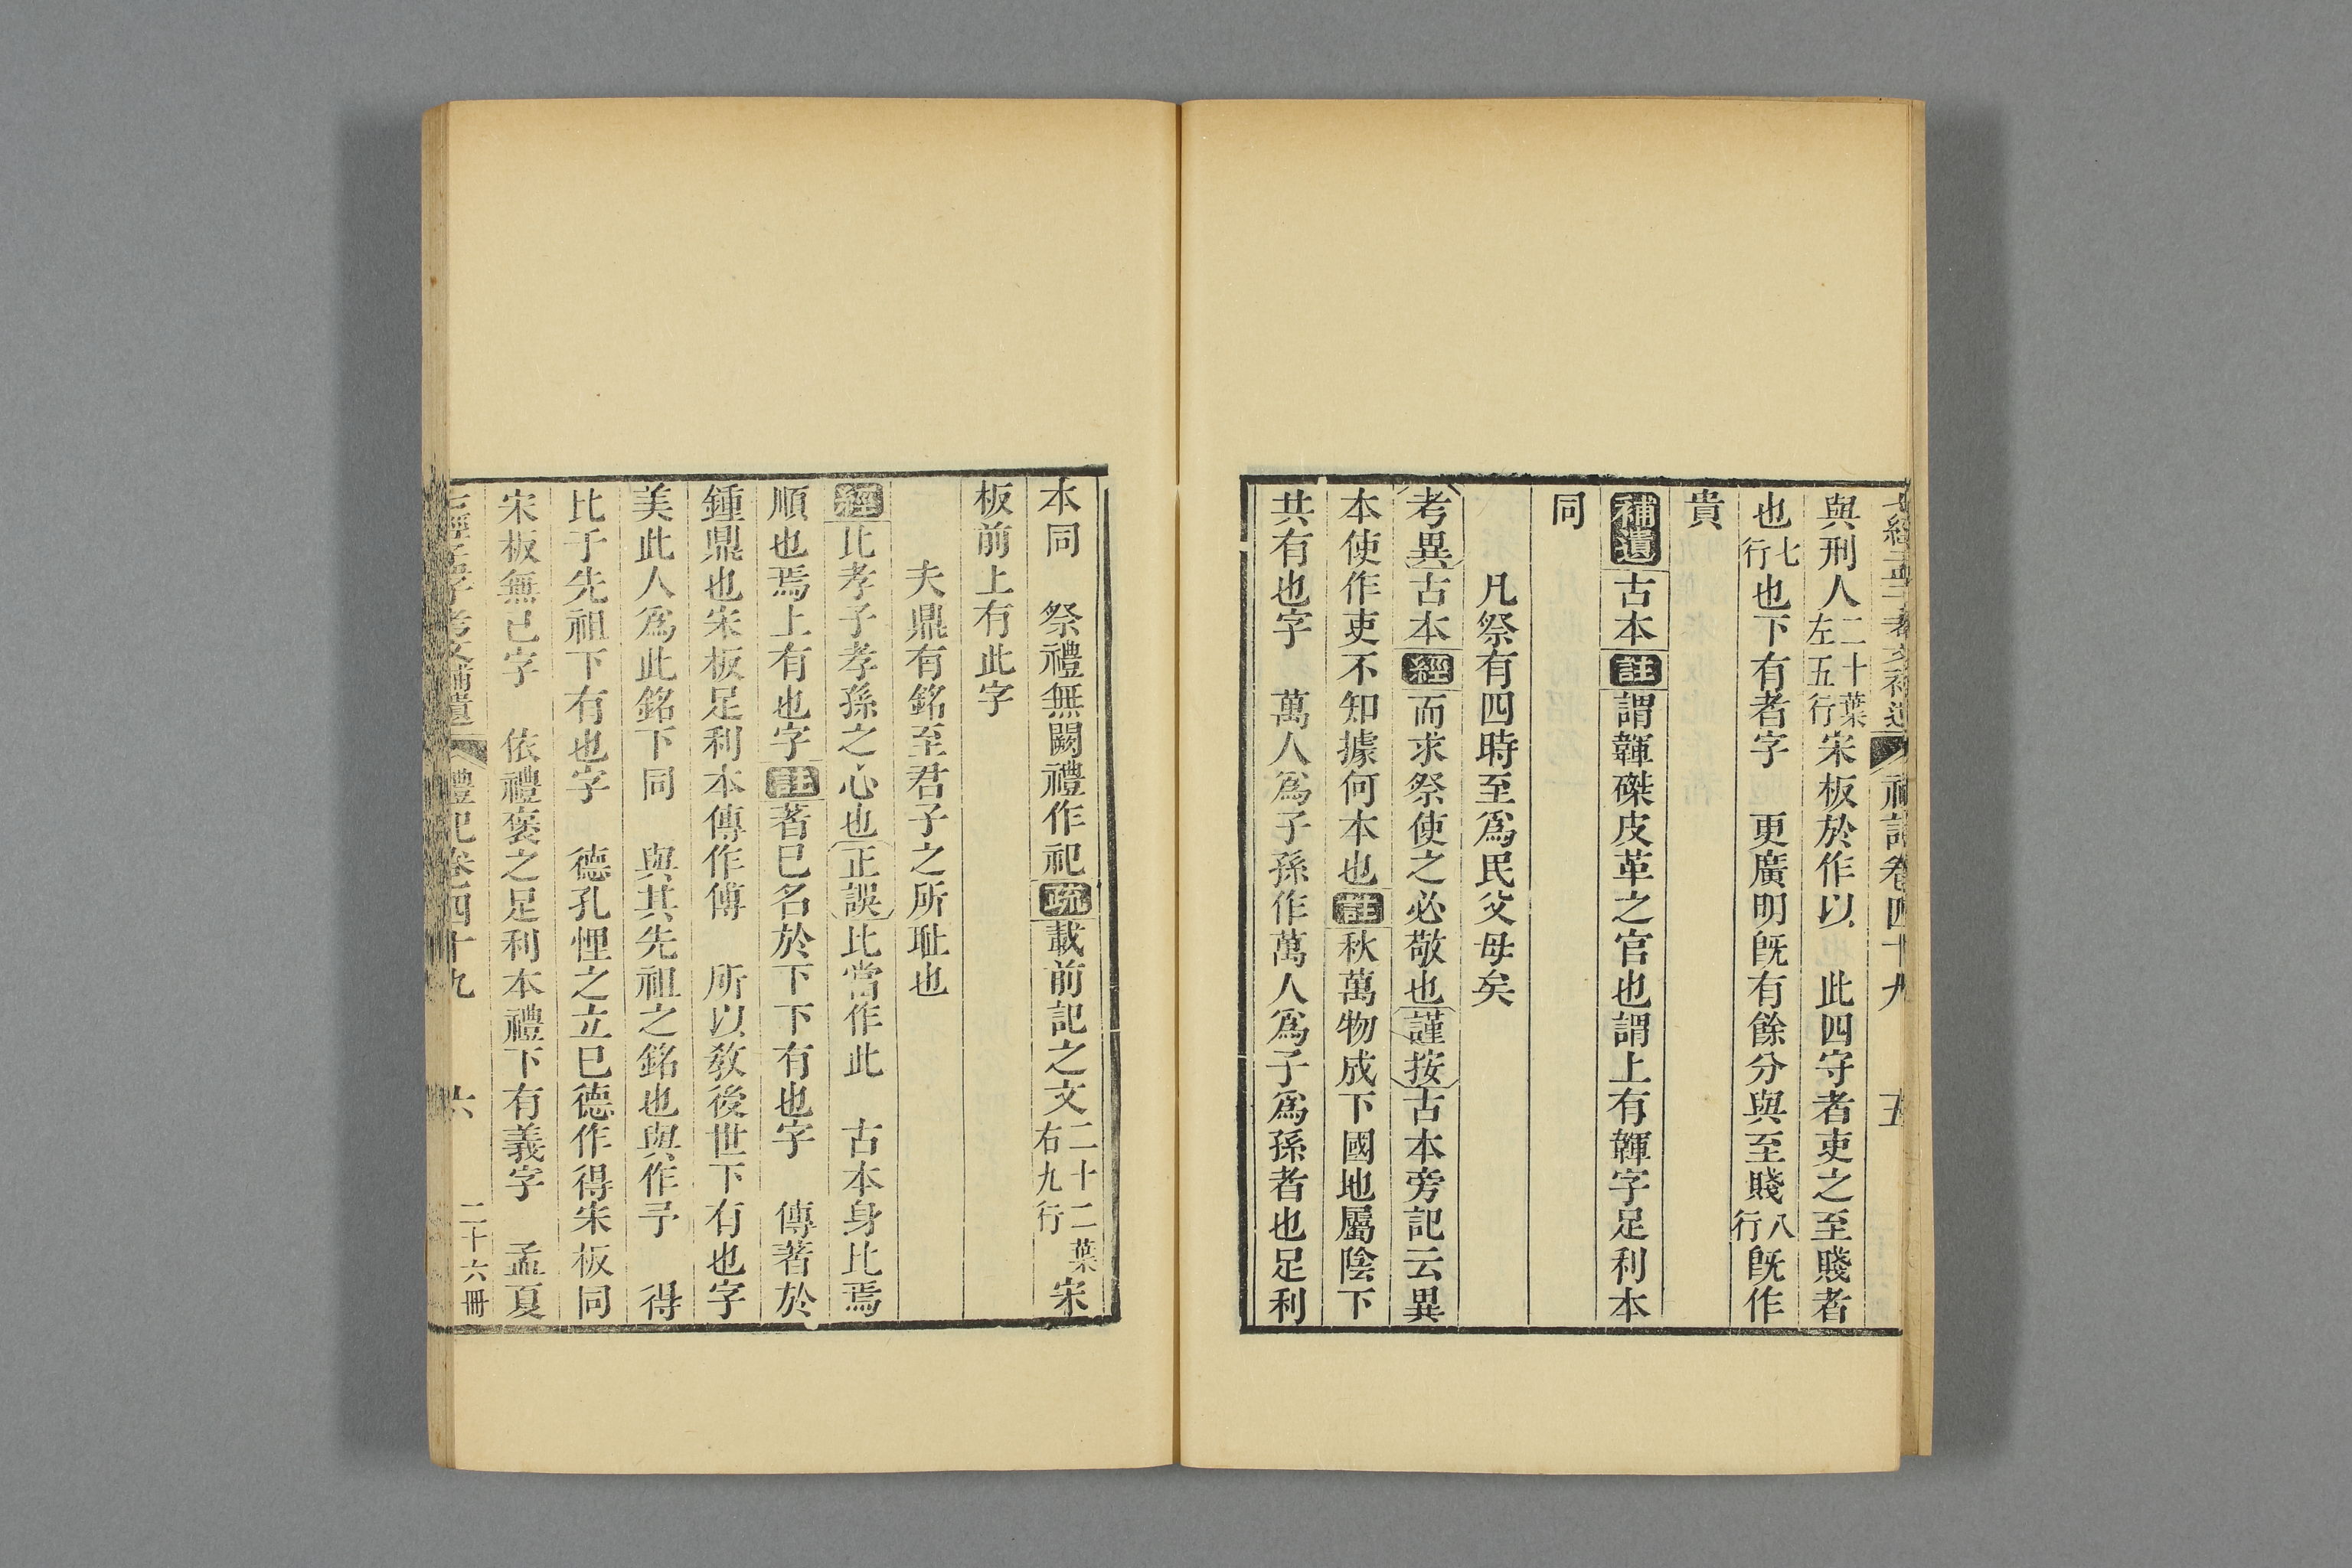 與刑人二十葉左五行宋板於作以　此四守者吏之至賤者
也七行也下有者字　更廣明旣有餘分與至賤八行旣作
貴
補遺古本註謂韗磔皮革之官也謂上有韗字足利本
同
凡祭有四時至爲民父母矣
考異古本經而求祭使之必敬也謹按古本旁記云異
本使作吏不知據何本也註秋萬物成下國地屬陰下
共有也字　萬人爲子孫作萬人爲子爲孫者也足利
本同　祭禮無闕禮作祀疏載前記之文二十二葉右九行宋
板前上有此字
夫鼎有銘至君子之所耻也
經比孝子孝孫之心也正誤比當作此　古本身比焉
順也焉上有也字註著已名於下下有也字　傳著於
鍾鼎也宋板足利本傳作傅　所以敎後世下有也字
美此人爲此銘下同　與其先祖之銘也與作予　得
比于先祖下有也字　德孔悝之立已德作得宋板同
宋板無已字　依禮襃之足利本禮下有義字　孟夏
七經孟子考文補遺　禮記卷四十九　六　二十六冊